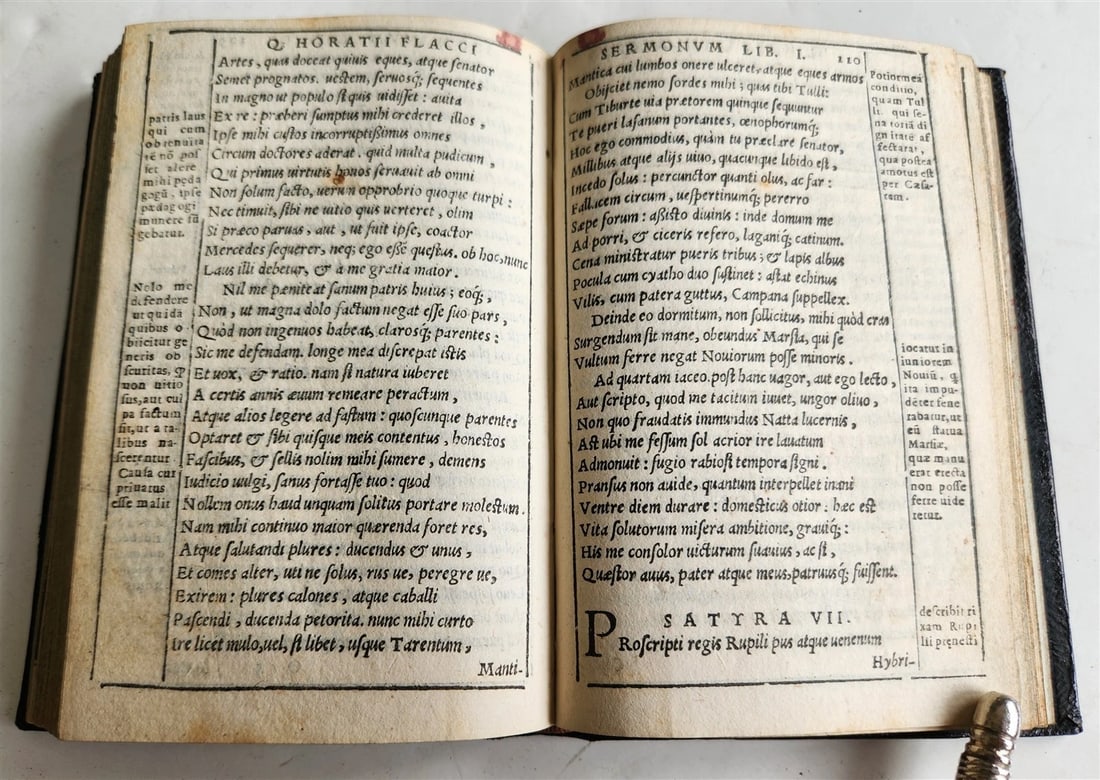 Q. HORATII FLACCI
Artes, quas doceat quiuis eques, atque senator
Semet prognatos. uestem, seruosq; sequentes
In magno ut populo si quis uidisset: auita
Ex re: præberi sumptus mihi crederet illos,
Ipse mihi custos incorruptissimus omnes
Circum doctores aderat. quid multa pudicum,
Qui primus uirtutis honos seruauit ab omni
Non solum facto, uerum opprobrio quoque turpi:
Nec timuit, sibi ne uitio quis uerteret, olim
Si præco paruas, aut, ut fuit ipse, coactor
Mercedes sequerer, neq; ego essē questus. ob hoc, nunc
Laus illi debetur, & a me gratia maior.
Nil me pœniteat sanum patris huius; eoq;,
Non, ut magna dolo factum negat esse suo pars,
Quòd non ingenuos habeat, clarosq; parentes:
Sic me defendam. longe mea discrepat istis
Et uox, & ratio. nam si natura iuberet
A certis annis æuum remeare peractum,
Atque alios legere ad fastum: quoscunque parentes
Optaret & sibi quisque meis contentus, honestos
Fascibus, & sellis nolim mihi sumere, demens
Iudicio uulgi, sanus fortasse tuo: quod
Nollem onus haud unquam solitus portare molestum.
Nam mihi continuo maior quærenda foret res,
Atque salutandi plures: ducendus & unus,
Et comes alter, uti ne solus, rus ue, peregre ue,
Exirem: plures calones, atque caballi
Pascendi, ducenda petorita. nunc mihi curto
Ire licet mulo, uel, si libet, usque Tarentum,
Manti-
patris laus
qui cum
ob tenuita
tē nō pos
set alere
mihi pęda
gogū, ipse
pædagogi
munere fū
gebatur.
Nolo me
defendere
ut quida
quibus o
biicitur ge
neris ob
scuritas, ꝙ
non uitio
suo, aut cul
pa factum
sit, ut a ta-
libus na-
scerentur.
Causa cur
priuatus
esse malit
SERMONVM LIB. I. 110
Mantica cui lumbos onere ulceret, atque eques armos
Obijciet nemo sordes mihi; quas tibi Tulli:
Cum Tiburte uia prætorem quinque sequuntur
Te pueri lasanum portantes, œnophorumq;
Hoc ego commodius, quàm tu præclare senator,
Millibus atque alijs uiuo, quacunque libido est,
Incedo solus: percunctor quanti olus, ac far:
Fallacem circum, uespertinumq; pererro
Sæpe forum: assisto diuinis: inde domum me
Ad porri, & ciceris refero, laganiq; catinum.
Cena ministratur pueris tribus; & lapis albus
Pocula cum cyatho duo sustinet: astat echinus
Vilis, cum patera guttus, Campana suppellex.
Deinde eo dormitum, non sollicitus, mihi quòd cras
Surgendum sit mane, obeundus Marsia, qui se
Vultum ferre negat Nouiorum posse minoris.
Ad quartam iaceo. post hanc uagor, aut ego lecto,
Aut scripto, quod me tacitum iuuet, ungor oliuo,
Non quo fraudatis immundus Natta lucernis,
Ast ubi me fessum sol acrior ire lauatum
Admonuit: fugio rabiosi tempora signi.
Pransus non auide, quantum interpellet inani
Ventre diem durare: domesticus otior: hæc est
Vita solutorum misera ambitione, grauiq;:
His me consolor uicturum suauius, ac si,
Quæstor auus, pater atque meus, patruusq; fuissent.
SATYRA VII.
PRoscripti regis Rupili pus atque uenenum
Hybri-
Potior mea
conditio,
quam Tul
li. qui se-
natoriā di
gnitatē af
fectarat,
qua postea
amotus est
per Cæsa-
rem.
iocatur in
iuniorem
Nouiū, ꝙ
ita impu-
dēter fene
rabatur, ut
eū statua
Marsiæ,
quæ manu
erat erecta
non posse
ferre uide
retur.
describit ri
xam Rupi
lii pręnesti